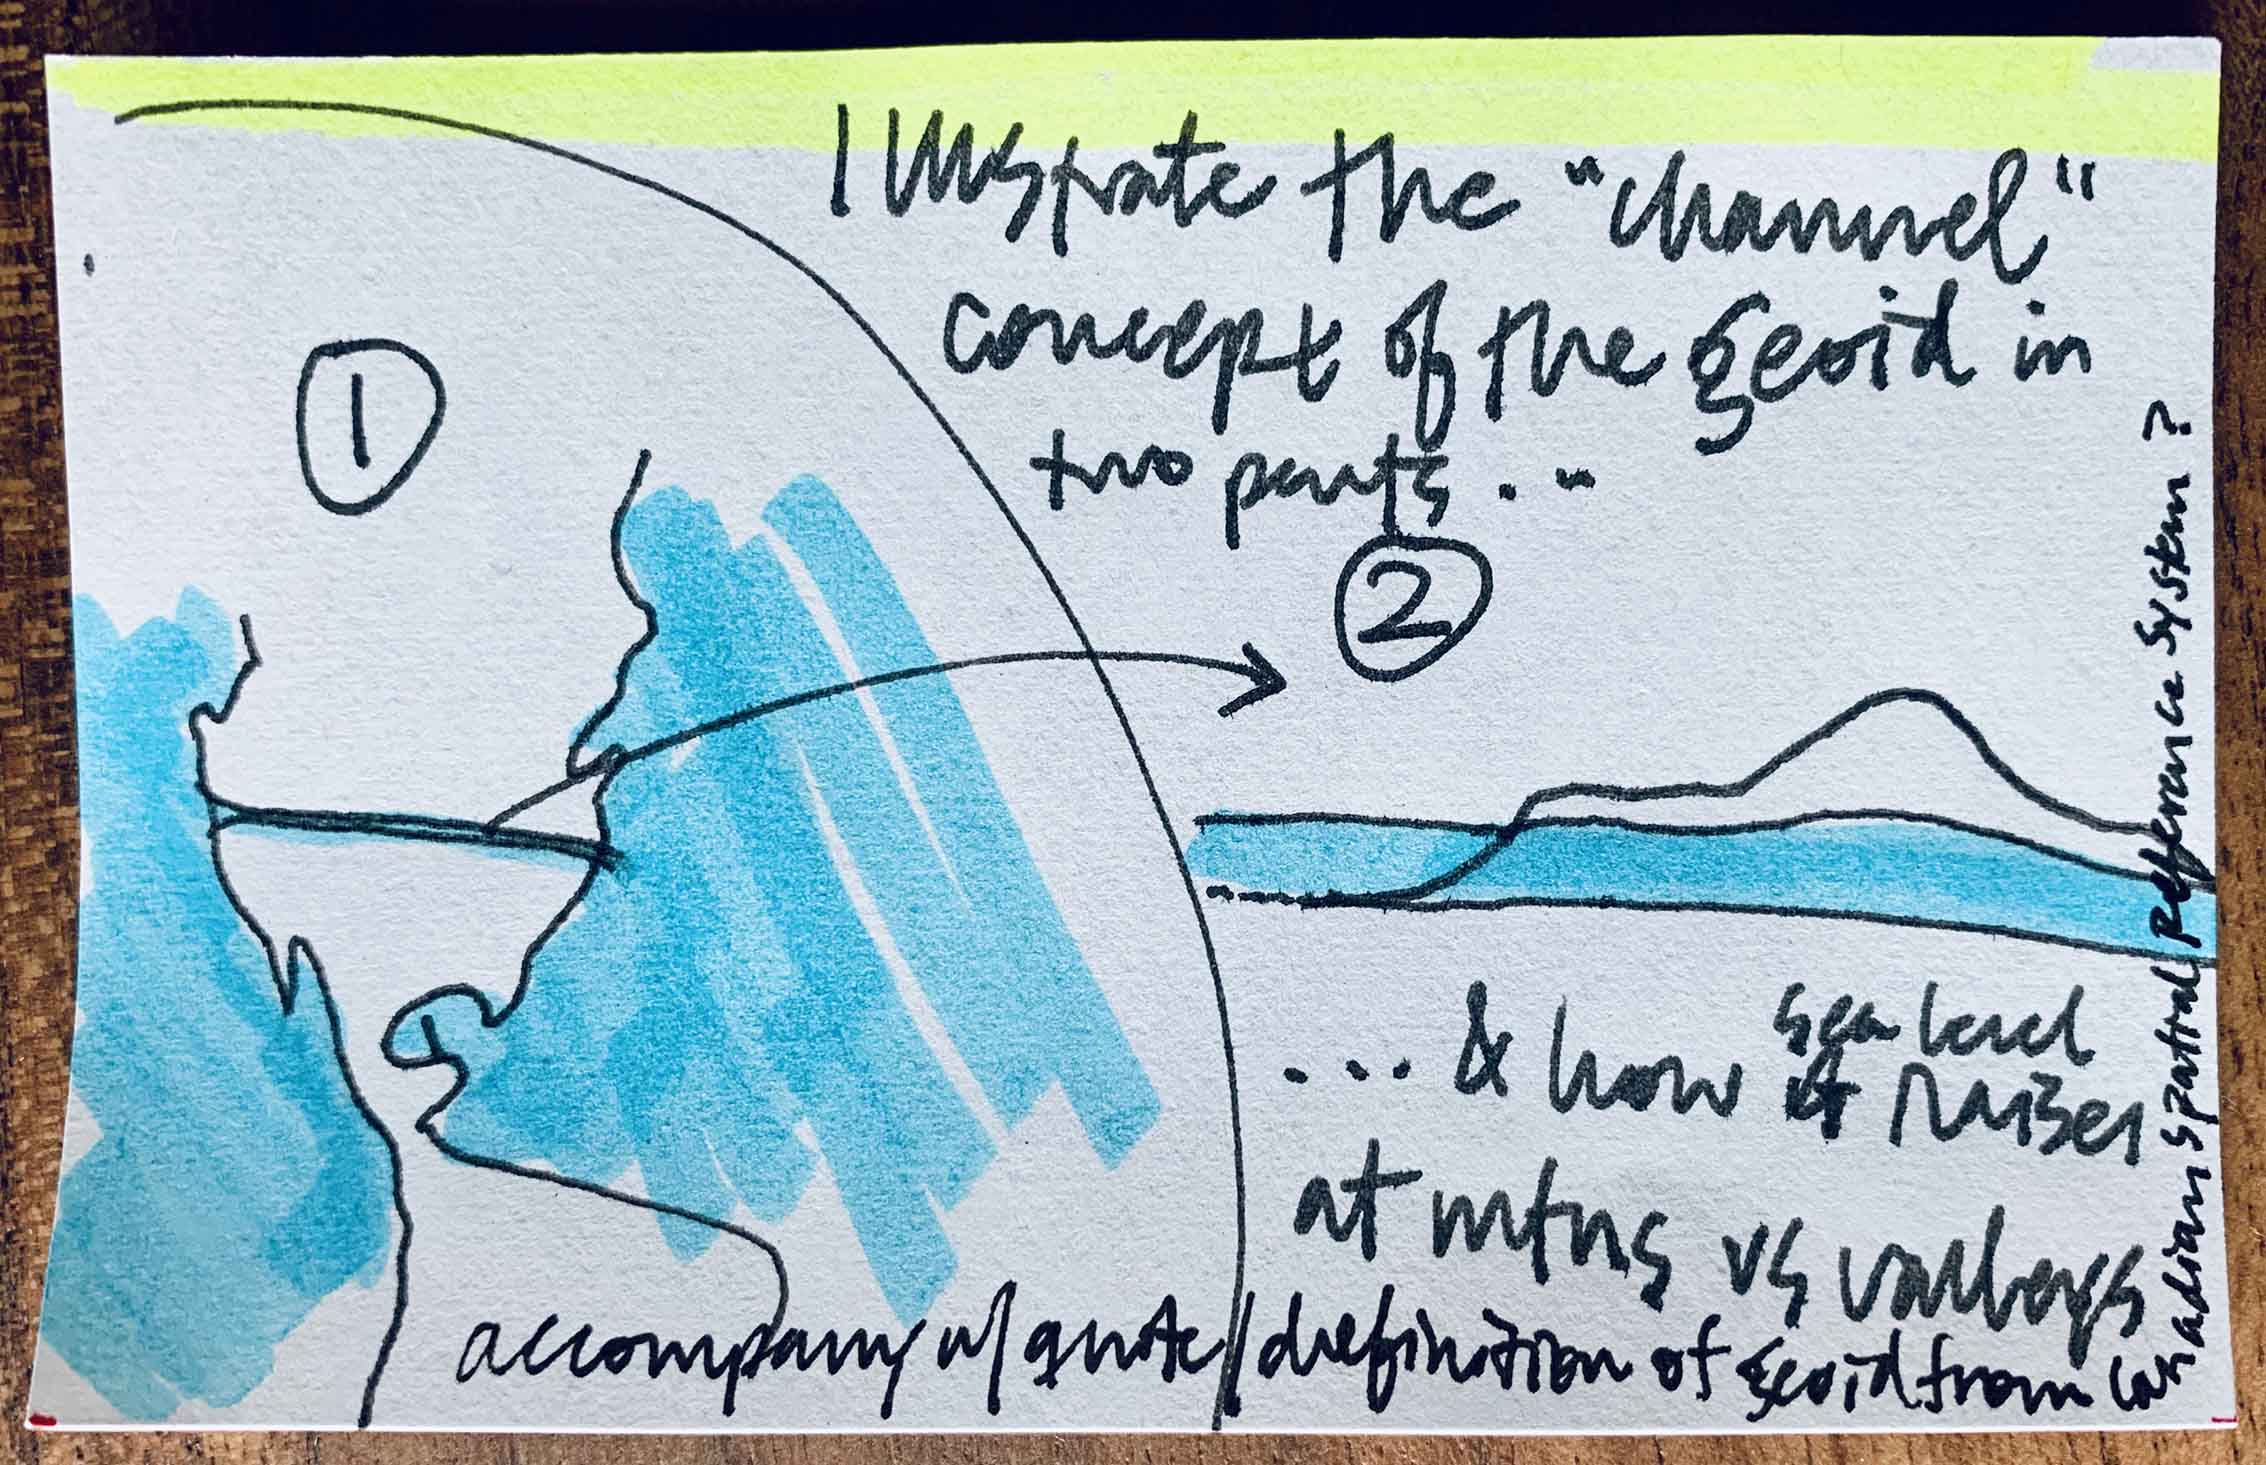 Illustrate the "channel"
concept of the geoid in
two parts...
1
2
... & how sea level
raises
at mtns vs valleys
accompany w/ quote/definition of geoid from Canadian spatial Refference System?